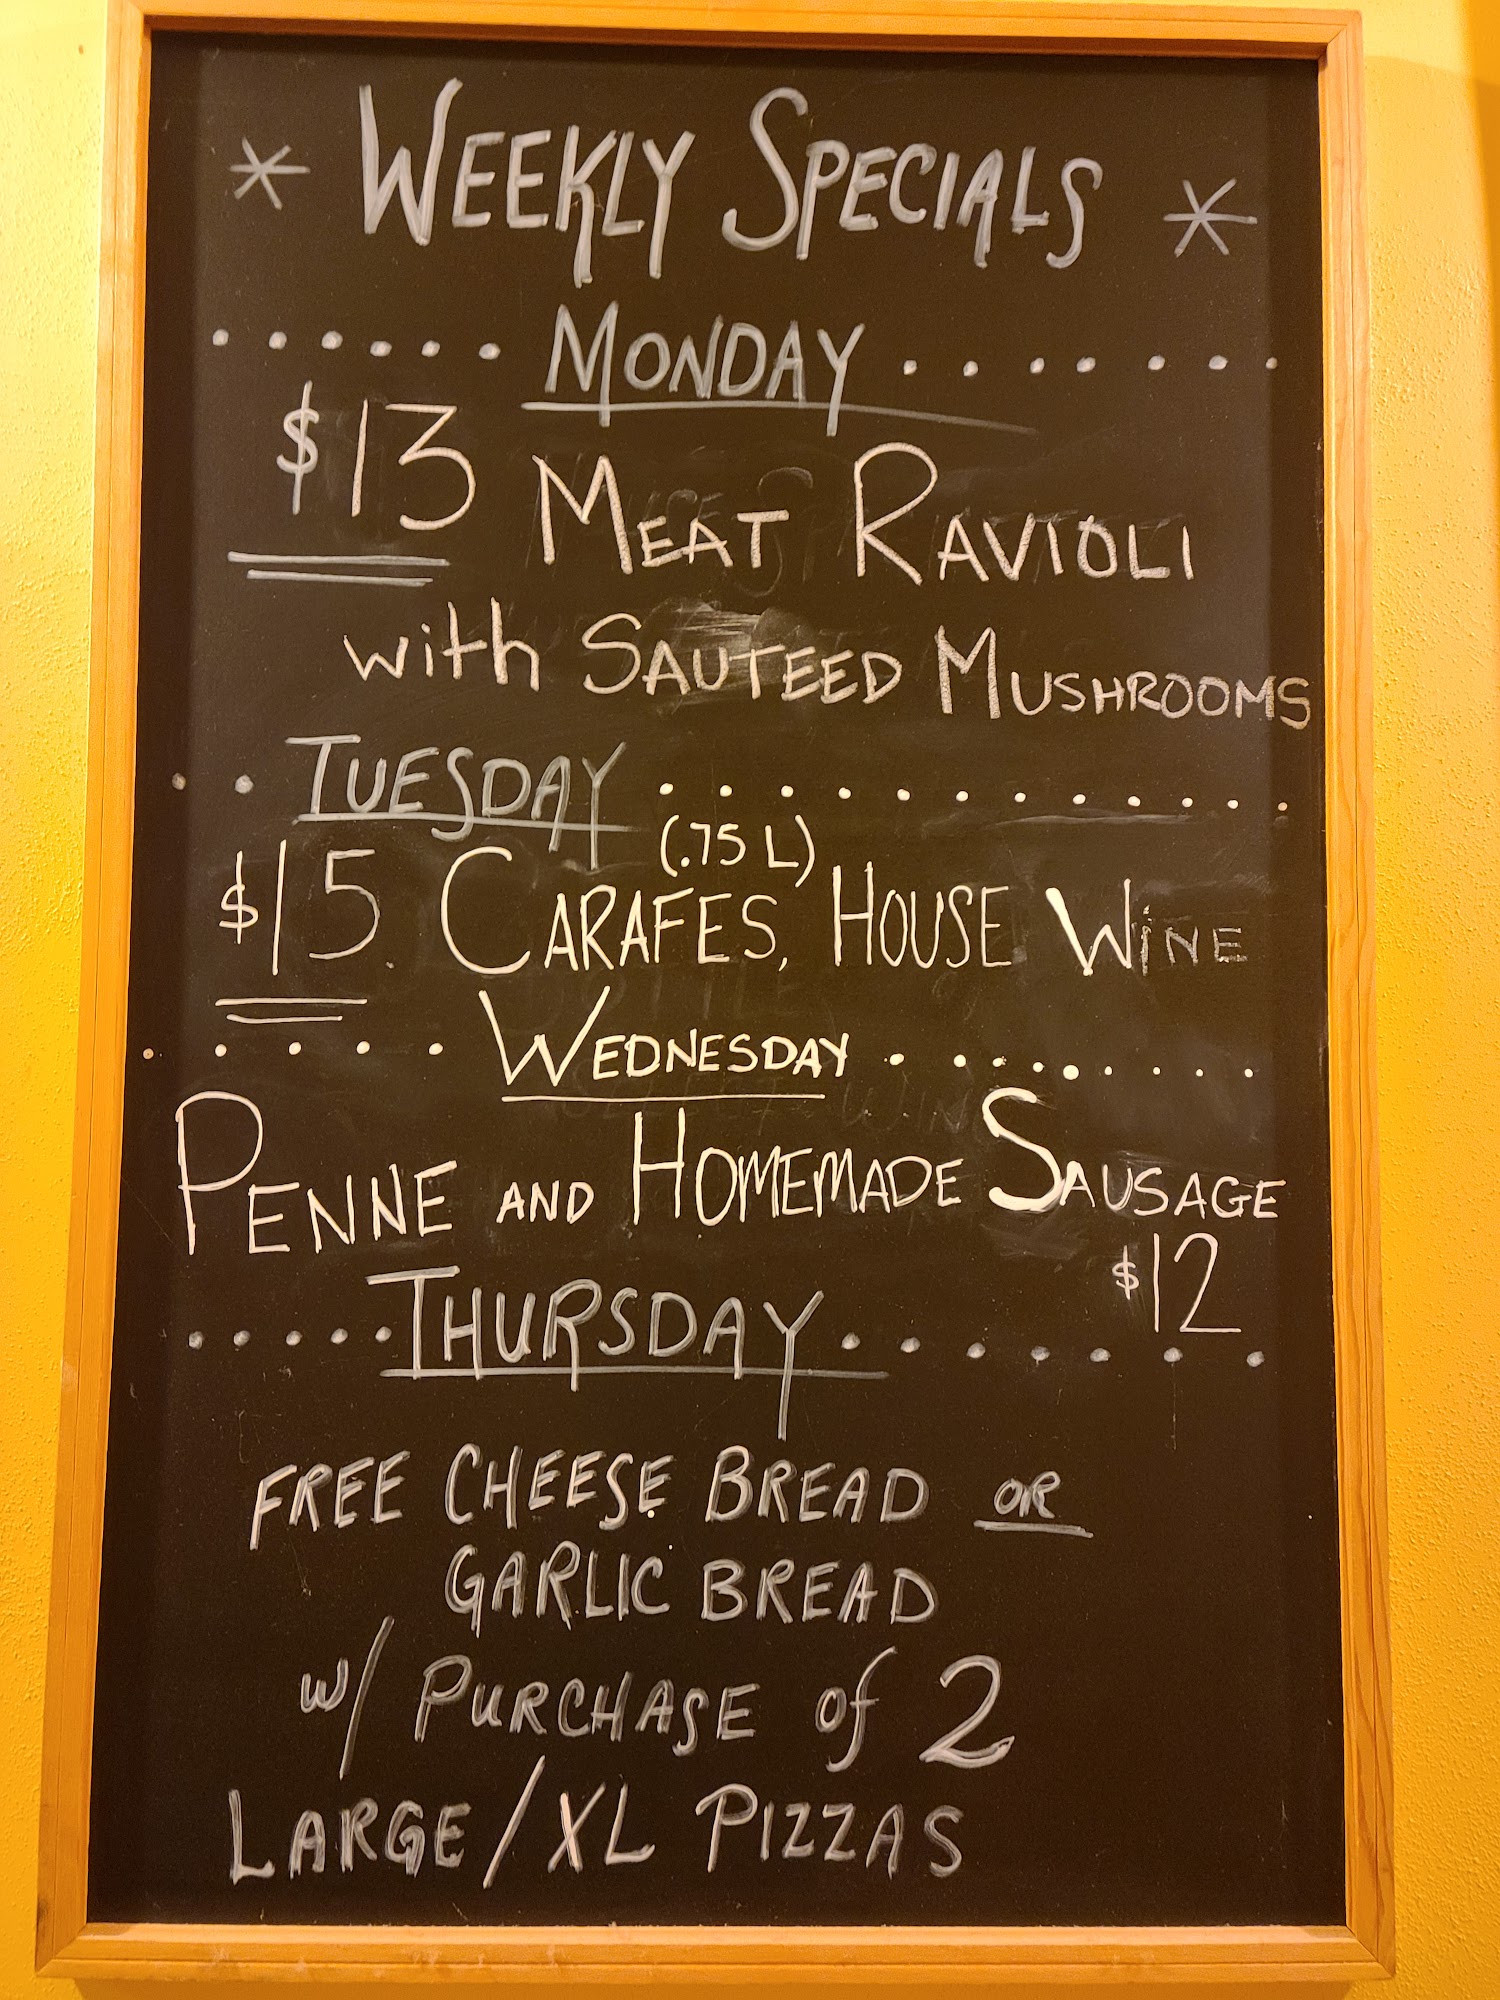 * WEEKLY SPECIALS *
...... MONDAY .......
$13 MEAT RAVIOLI
with SAUTEED MUSHROOMS
.. TUESDAY ............
(.75 L)
$15 CARAFES, HOUSE WINE
..... WEDNESDAY ........
PENNE AND HOMEMADE SAUSAGE
$12
..... THURSDAY .......
FREE CHEESE BREAD OR
GARLIC BREAD
w/ PURCHASE of 2
LARGE/XL PIZZAS